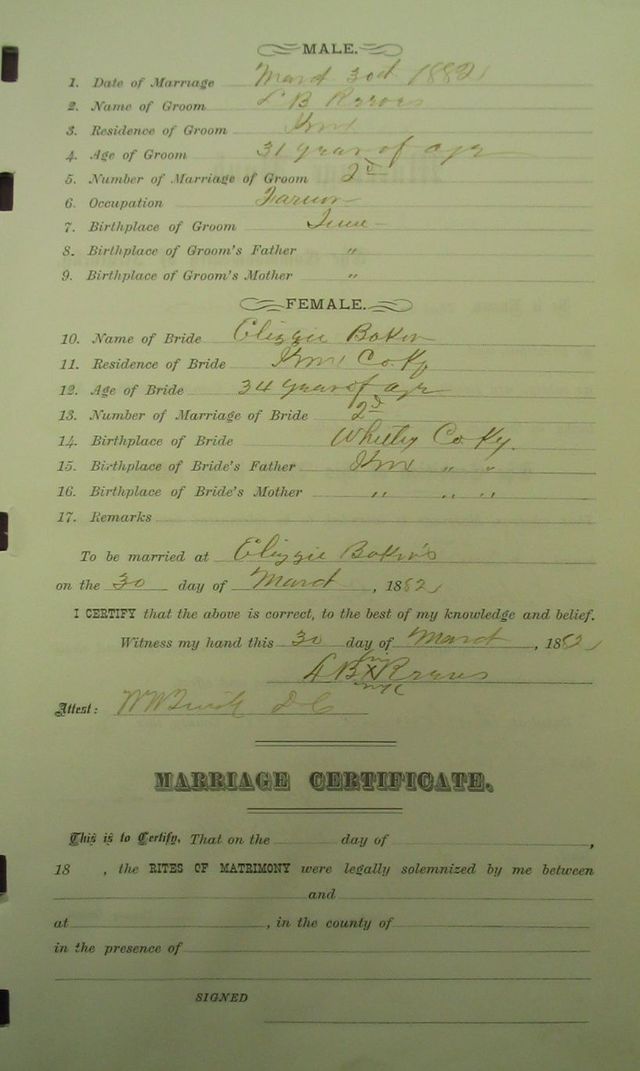 MALE.
1. Date of Marriage March 30d 1882
2. Name of Groom L B
3. Residence of Groom
4. Age of Groom 31 years of age
5. Number of Marriage of Groom 2d
6. Occupation Farmer
7. Birthplace of Groom
8. Birthplace of Groom's Father "
9. Birthplace of Groom's Mother "
FEMALE.
10. Name of Bride Elizzie Baker
11. Residence of Bride Co Ky
12. Age of Bride 34 years of age
13. Number of Marriage of Bride 2d
14. Birthplace of Bride Whitley Co Ky.
15. Birthplace of Bride's Father " "
16. Birthplace of Bride's Mother " " "
17. Remarks
To be married at Elizzie Baker's
on the 30 day of March, 1882
I CERTIFY that the above is correct, to the best of my knowledge and belief.
Witness my hand this 30 day of March, 1882
B X
Attest: D C
MARRIAGE CERTIFICATE.
This is to Certify, That on the day of ,
18 , the RITES OF MATRIMONY were legally solemnized by me between
and
at , in the county of
in the presence of
SIGNED